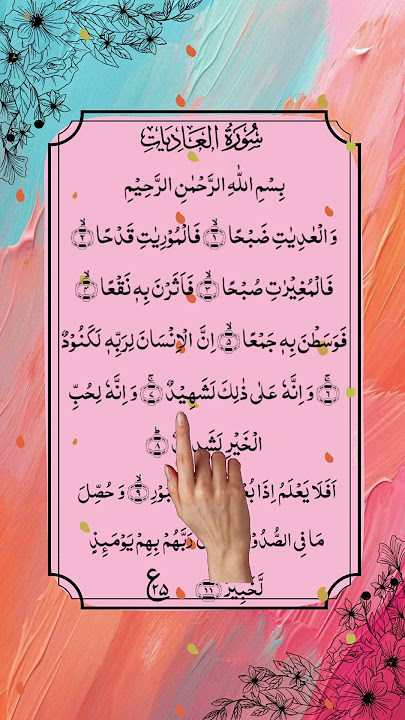 سُوْرَةُ الْعَادِيَاتِ
بِسْمِ اللّٰهِ الرَّحْمٰنِ الرَّحِيْمِ
وَالْعٰدِيٰتِ ضَبْحًا ۙ﴿۱﴾ فَالْمُوْرِيٰتِ قَدْحًا ۙ﴿۲﴾
فَالْمُغِيْرٰتِ صُبْحًا ۙ﴿۳﴾ فَاَثَرْنَ بِهٖ نَقْعًا ۙ﴿۴﴾
فَوَسَطْنَ بِهٖ جَمْعًا ۙ﴿۵﴾ اِنَّ الْاِنْسَانَ لِرَبِّهٖ لَكَنُوْدٌ
ۚ﴿۶﴾ وَاِنَّهٗ عَلٰى ذٰلِكَ لَشَهِيْدٌ ۚ﴿۷﴾ وَاِنَّهٗ لِحُبِّ
الْخَيْرِ ﴿۸﴾
اَفَلَا يَعْلَمُ اِذَا ﴿۹﴾ وَحُصِّلَ
مَا فِى رَبَّهُمْ بِهِمْ يَوْمَئِذٍ
لَّخَبِيْرٌ ﴿۱۱﴾ ع ۲۵